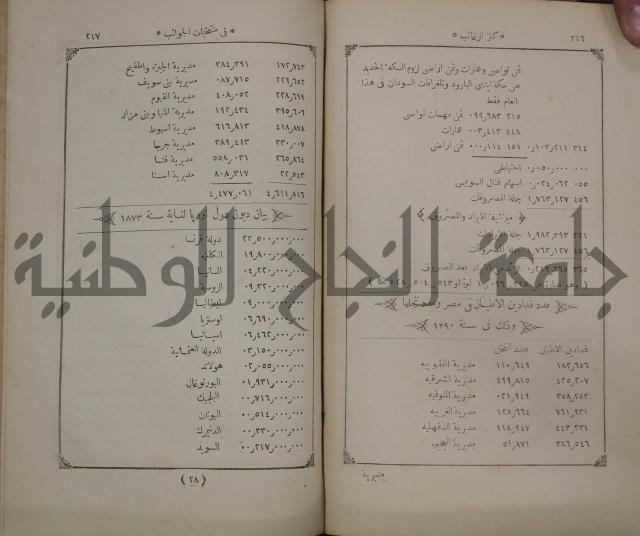 ٢١٦
﴿ كنز الرغائب ﴾
ثمن تواصى وعمارات وثمن اراضى لزوم السكة الحديد
عن سكة ايتاى البارود وتلغرافات السودان فى هذا
العام فقط
٢١٥ ٠٩٩٫٦٨٣ ثمن مهمات تواصى
٤٤٨ ٠٠٣٫٤١٣ عمارات
٣١٤ ٠٫١٠٣٫٢١١ ١٥١ ٠٠٠٫١١٤ ثمن اراضى
٠٠٠ ٠٫٠٥٠٫٠٠٠ احتياطى
٠٥٥ ٠٫٠٣٤٫٠٦٢ اسهام قنال السويس
٤٥٦ ١٫٧٦٣٫١٢٧ جملة المصروفات
﴿ ميزانية الايراد والمصروف ﴾
٣٢١ ١٫٩٨٢٫٣٩٣ جملة الايرادات
٤٥٦ ١٫٧٦٣٫١٢٧ جملة المصروفات
عدد فدادين الاطيان فى مصر وعدد نخلها
وذلك فى سنة ١٢٩٠
فدادين الاطيان عدد النخل
١٨٢٫٦٥٦ ١١٠٫٦٤٩ مديرية القليوبيه
٤٢٥٫٢٠٧ ٤٩٩٫٨١٥ مديرية الشرقيه
٣٥٨٫٢٥٣ ٠٢١٫٩٤٩ مديرية المنوفيه
٧٦١٫٩٣١ ١٢٨٫٦٦٤ مديرية الغربيه
٤٤٣٫٢٣١ ١١٨٫٩٤٧ مديرية الدقهليه
٣٨٦٫٥٤٦ ٠٥١٫٨٧١ مديرية البحيره
مديرية
﴿ فى منتخبات الجوائب ﴾
٢١٧
١٧٢٫٧٤٣ ٣٨٤٫٣٩١ مديرية الجيزه واطفيح
٢٢٩٫٦٥٢ ٠٨٧٫٧١٥ مديرية بنى سويف
٢٢٨٫٦٩٩ ٤٠٨٫٠٥٢ مديرية الفيوم
٣٩٥٫٦٠٦ ١٩٢٫٤٣٤ مديرية المنيا وبنى مزار
٤١٨٫٨٧٨ ٦١٦٫٨١٣ مديرية اسيوط
٢٣٠٫٠٠٧ ٣٨٩٫٤١٣ مديرية جرجا
٢٦٥٫٨٦٤ ٥٥٨٫٠٣١ مديرية قنا
٢٢٫٥٤٣ ٨٠٨٫٣١٧ مديرية اسنا
٤٫٦١١٫٨١٦ ٤٫٤٧٧٫٠٦١
بيان ديون دول اوروپا لغاية سنة ١٨٧٣
٢٢٫٥٠٠٫٠٠٠٫٠٠٠ دولة فرنسا
١٩٫٨٠٠٫٠٠٠٫٠٠٠ انكلتره
٠٤٫٢٢٠٫٠٠٠٫٠٠٠ المانيا
٠٩٫٣٢٠٫٠٠٠٫٠٠٠ الروسية
٠٩٫٠٠٠٫٠٠٠٫٠٠٠ ايطاليا
٠٦٫٦٩٠٫٠٠٠٫٠٠٠ اوستريا
٠٦٫٤٦٢٫٠٠٠٫٠٠٠ اسبانيا
٠٣٫١٥٠٫٠٠٠٫٠٠٠ الدولة العثمانية
٠٢٫٠٥٥٫٠٠٠٫٠٠٠ هولاند
٠١٫٩٣١٫٠٠٠٫٠٠٠ البورتوغال
٠٠٫٧١٦٫٠٠٠٫٠٠٠ البلجيك
٠٠٫٥١٤٫٠٠٠٫٠٠٠ اليونان
٠٠٫٣٣٠٫٠٠٠٫٠٠٠ الدنيمرك
٠٠٫٢١٧٫٠٠٠٫٠٠٠ السويد
(٢٨)
جامعة النجاح الوطنية